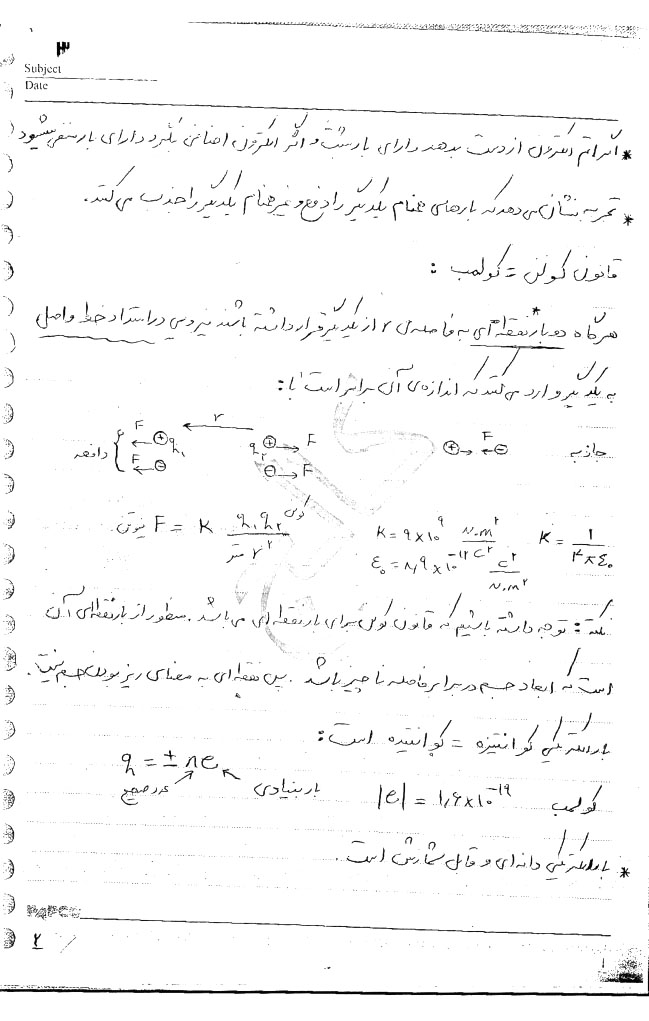 ۳
Subject
Date
* اگر اتم الکترون از دست بدهد دارای بار مثبت و اگر الکترون اضافی بگیرد دارای بار منفی میشود
* تجربه نشان می دهد که بارهای همنام یکدیگر را دفع و غیر همنام یکدیگر را جذب می کنند.
قانون کولن = کولمب :
هرگاه دو بار نقطه ای* به فاصله ی r از یکدیگر قرار داشته باشند نیرویی در امتداد خط واصل
به یکدیگر وارد می کنند که اندازه ی آن برابر است با:
جاذبه ⊕→ F ←⊖ q₂ ⊕→ F r F ←⊕ q₁ دافعه
⊖→ F F ←⊖
نیوتن F = K q₁q₂ کولن / r² متر K = ۹×۱۰^۹ N.m²/C² K = 1/۴πε₀
ε₀ = ۸٫۹×۱۰^-۱۲ C²/N.m²
نکته : توجه داشته باشیم که قانون کولن برای بار نقطه ای می باشد. منظور از بار نقطه ای آن
است که ابعاد جسم در برابر فاصله ناچیز باشد. پس نقطه ای به معنای ریز بودن جسم نیست.
بار الکتریکی کوانتیزه = کوانتیده است:
q = ±ne
عدد صحیح بار بنیادی |e| = ۱٫۶×۱۰^-۱۹ کولمب
* بار الکتریکی دانه ای و قابل شمارش است.
PAPCO
۲